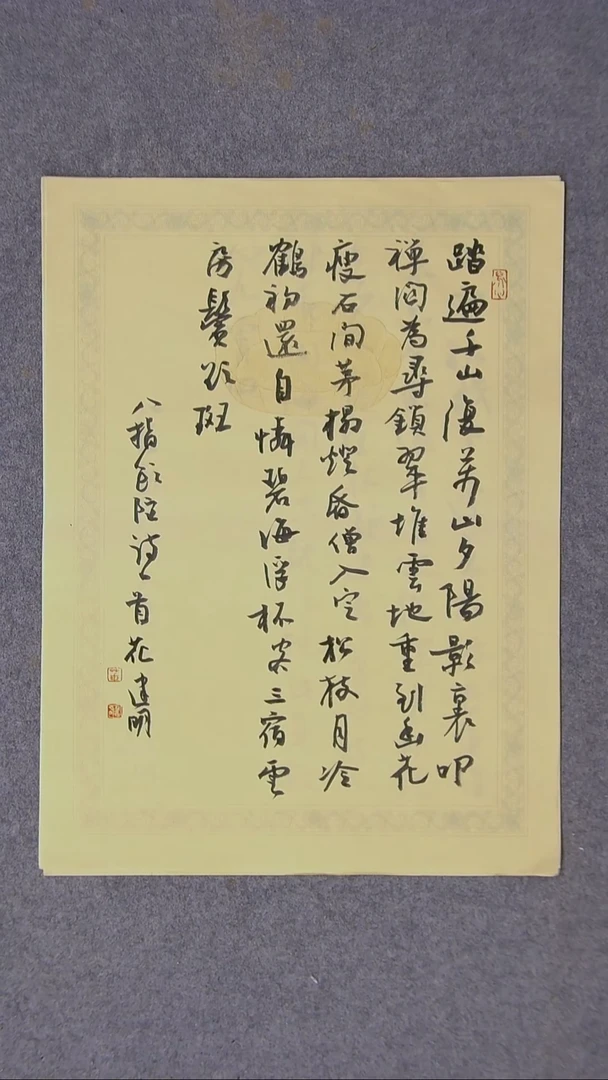 踏遍千山復萬山夕陽影裏叩
禪関為尋鎖翠堆雲地重到幽花
瘦石間茅榻燈昏僧入定松枝月冷
鶴初還自憐碧海浮杯客三宿雲
房鬢欲斑
八指頭陀詩一首花建明